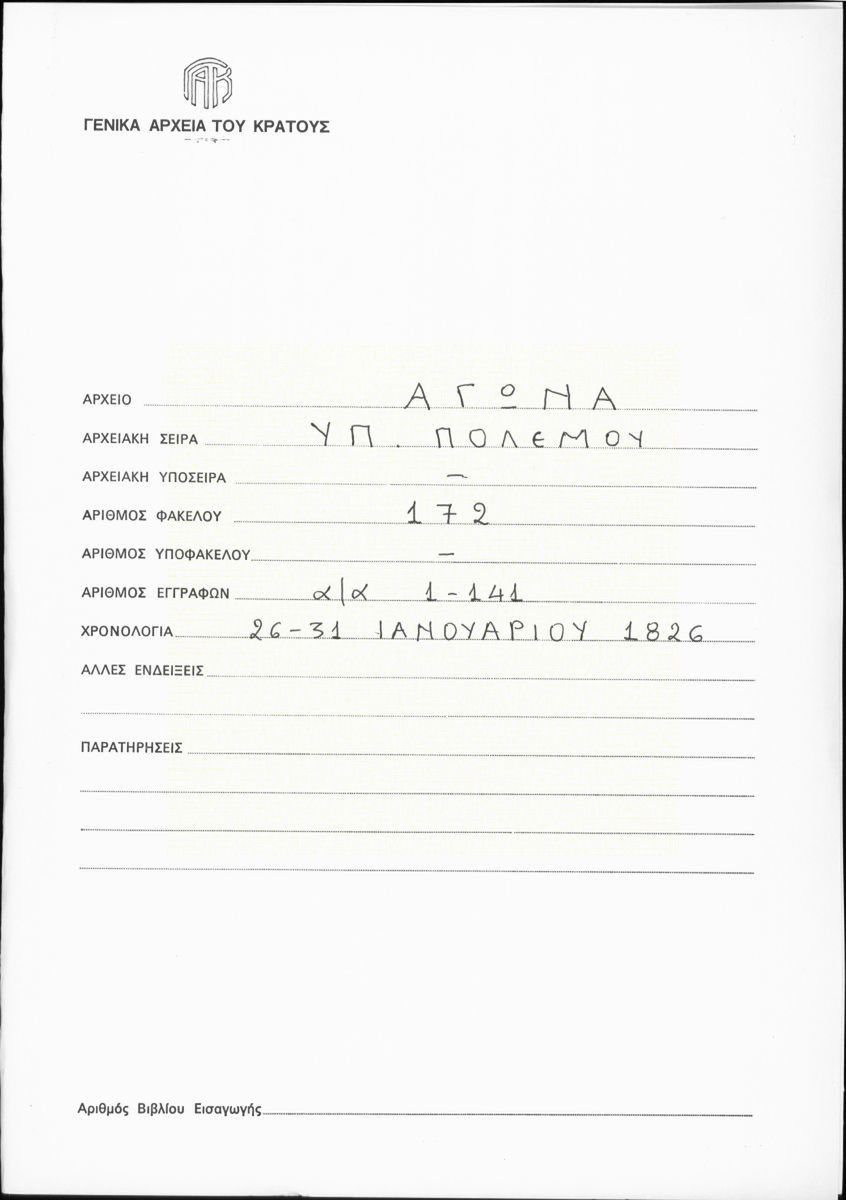 ΓΑΚ
ΓΕΝΙΚΑ ΑΡΧΕΙΑ ΤΟΥ ΚΡΑΤΟΥΣ
ΑΡΧΕΙΟ ΑΓΩΝΑ
ΑΡΧΕΙΑΚΗ ΣΕΙΡΑ ΥΠ. ΠΟΛΕΜΟΥ
ΑΡΧΕΙΑΚΗ ΥΠΟΣΕΙΡΑ —
ΑΡΙΘΜΟΣ ΦΑΚΕΛΟΥ 172
ΑΡΙΘΜΟΣ ΥΠΟΦΑΚΕΛΟΥ —
ΑΡΙΘΜΟΣ ΕΓΓΡΑΦΩΝ α/α 1-141
ΧΡΟΝΟΛΟΓΙΑ 26-31 ΙΑΝΟΥΑΡΙΟΥ 1826
ΑΛΛΕΣ ΕΝΔΕΙΞΕΙΣ
ΠΑΡΑΤΗΡΗΣΕΙΣ
Αριθμός Βιβλίου Εισαγωγής